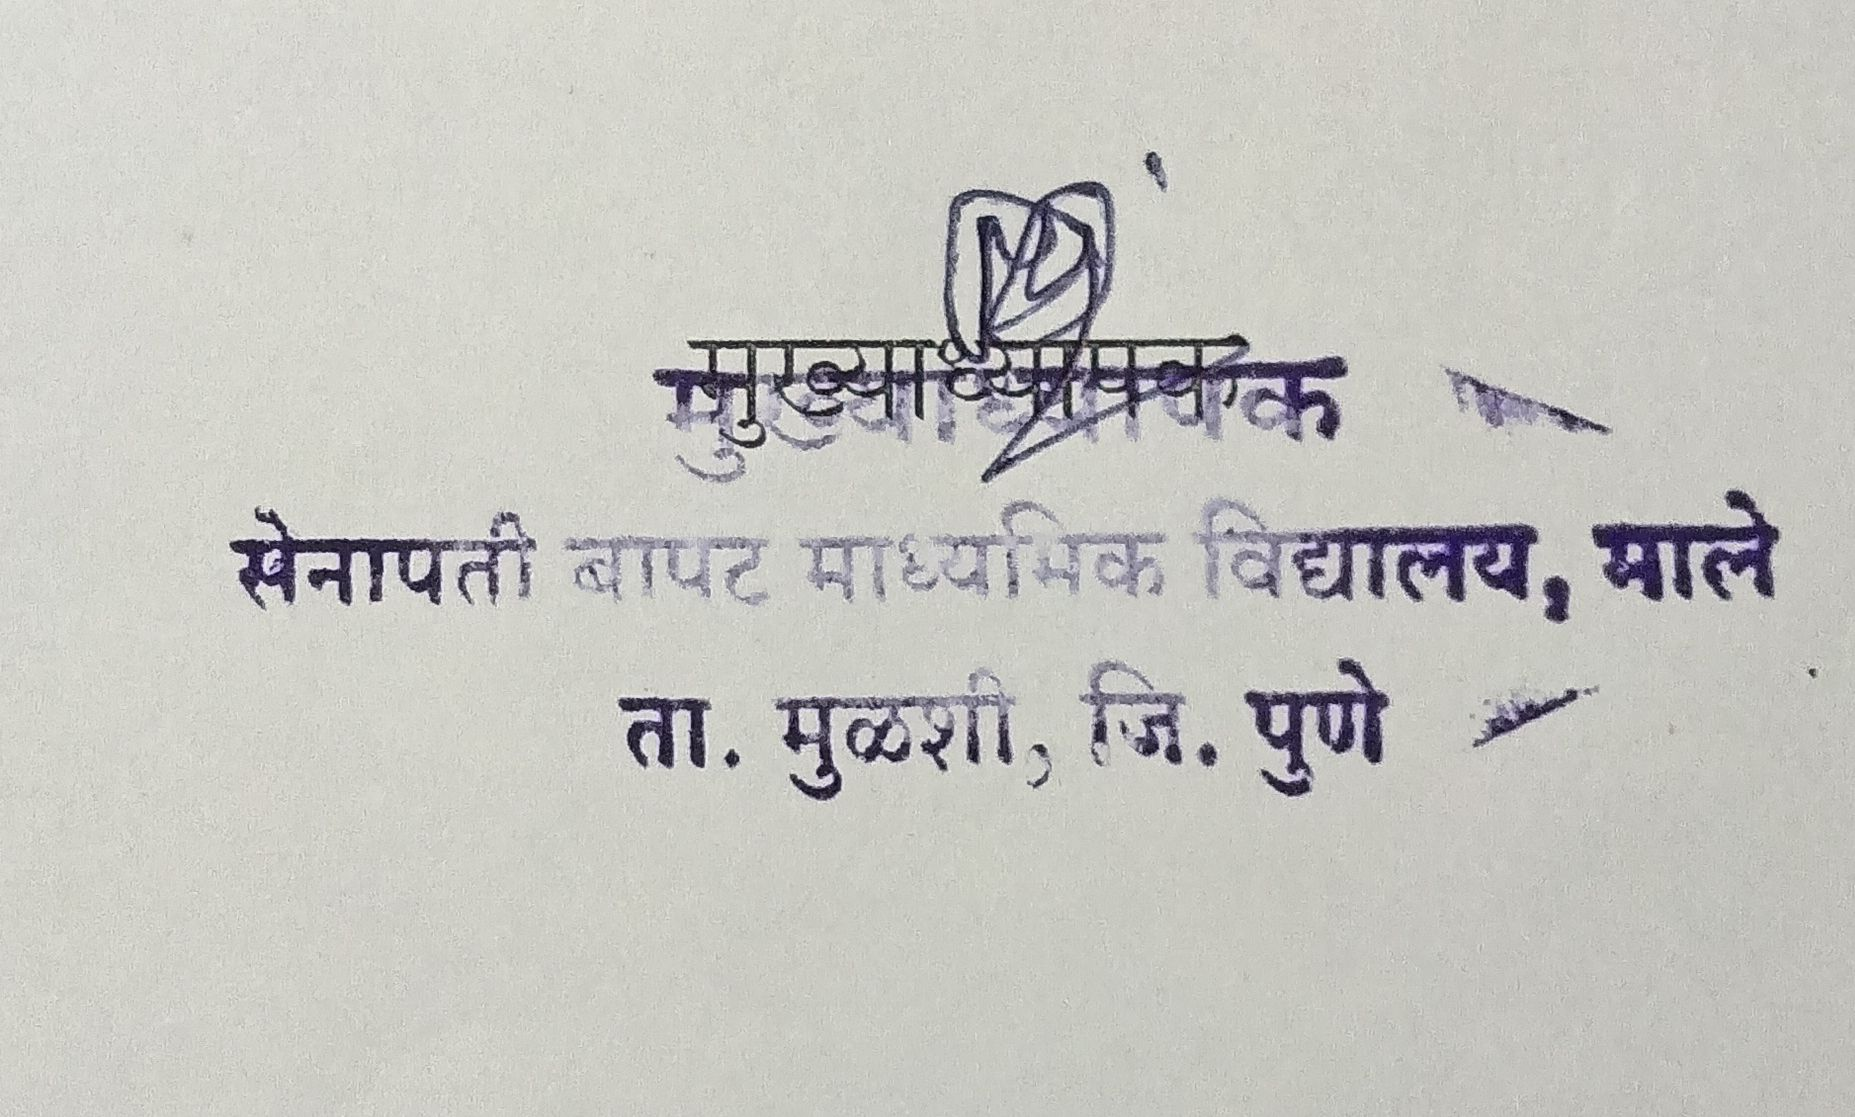 मुख्याध्यापक
मुख्याध्यापक
सेनापती बापट माध्यमिक विद्यालय, माले
ता. मुळशी, जि. पुणे